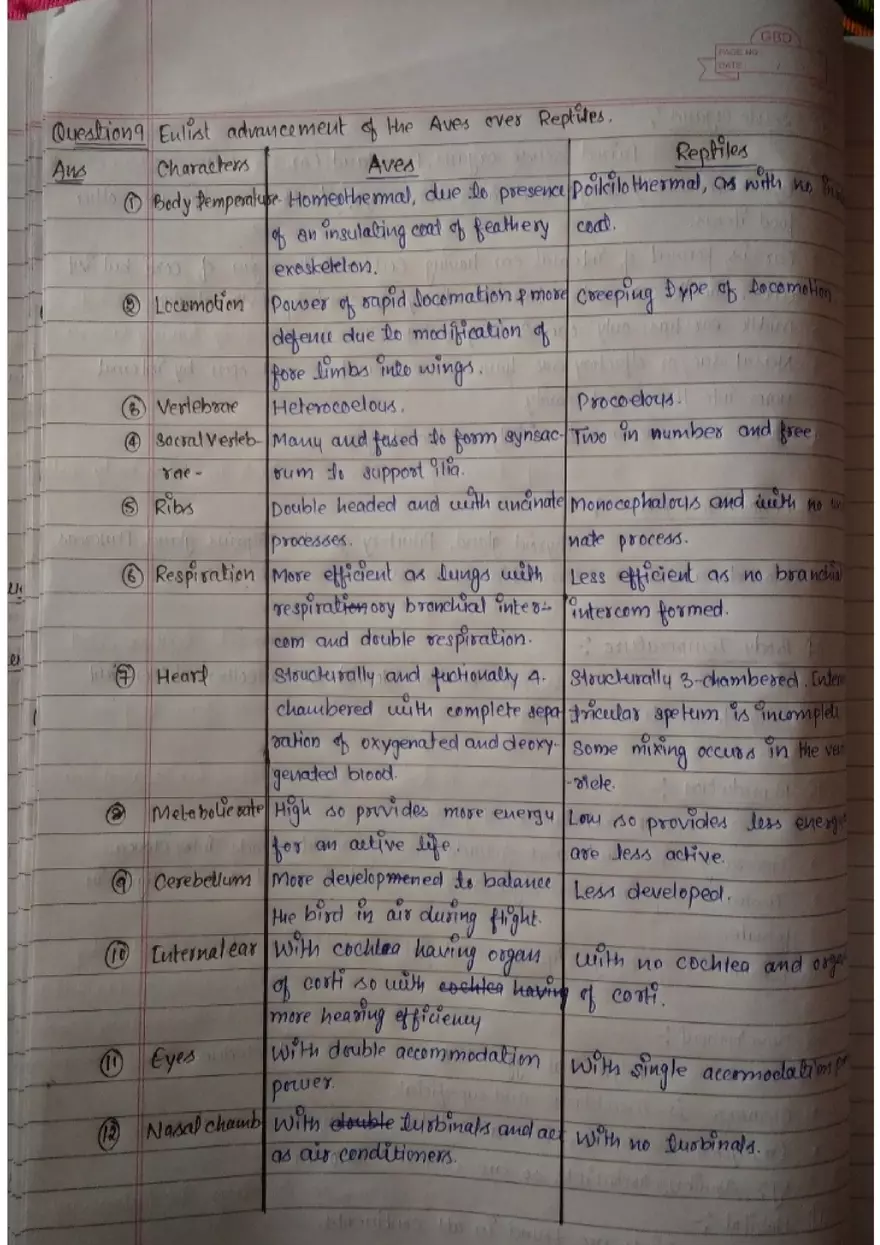 GBD
PAGE NO.
DATE
Question 9 Enlist advancement of the Aves over Reptiles.
Ans Characters Aves Reptiles
① Body temperature Homeothermal, due to presence Poikilothermal, as with no
of an insulating coat of feathery coat.
exoskeleton.
② Locomotion Power of rapid locomation & more Creeping type of locomotion
defence due to modification of
fore limbs into wings.
③ Vertebrae Heterocoelous. Procoelous.
④ Sacral Verteb- Many and fused to form synsac- Two in number and free
rae - rum to support ilia.
⑤ Ribs Double headed and with uncinate Monocephalous and with no
processes. nate process.
⑥ Respiration More efficient as lungs with Less efficient as no branchia
respirationory bronchial inter- intercom formed.
com and double respiration.
⑦ Heart Structurally and fuctionally 4. Structurally 3-chambered. Inter
chambered with complete sepa- tricular spetum is incomplet
ration of oxygenated and deoxy- Some mixing occurs in the ven
genated blood. -ricle.
⑧ Metabolic rate High so provides more energy Low so provides less energ
for an active life. are less active.
⑨ Cerebellum More developmened to balance Less developed.
the bird in air during flight.
⑩ Internal ear With cochlea having organ With no cochlea and orga
of corti so with cochlea having of corti.
more hearing efficiency
⑪ Eyes With double accommodation With single accomodation p
power.
⑫ Nasal chamb With double turbinals and act With no turbinals.
as air conditioners.